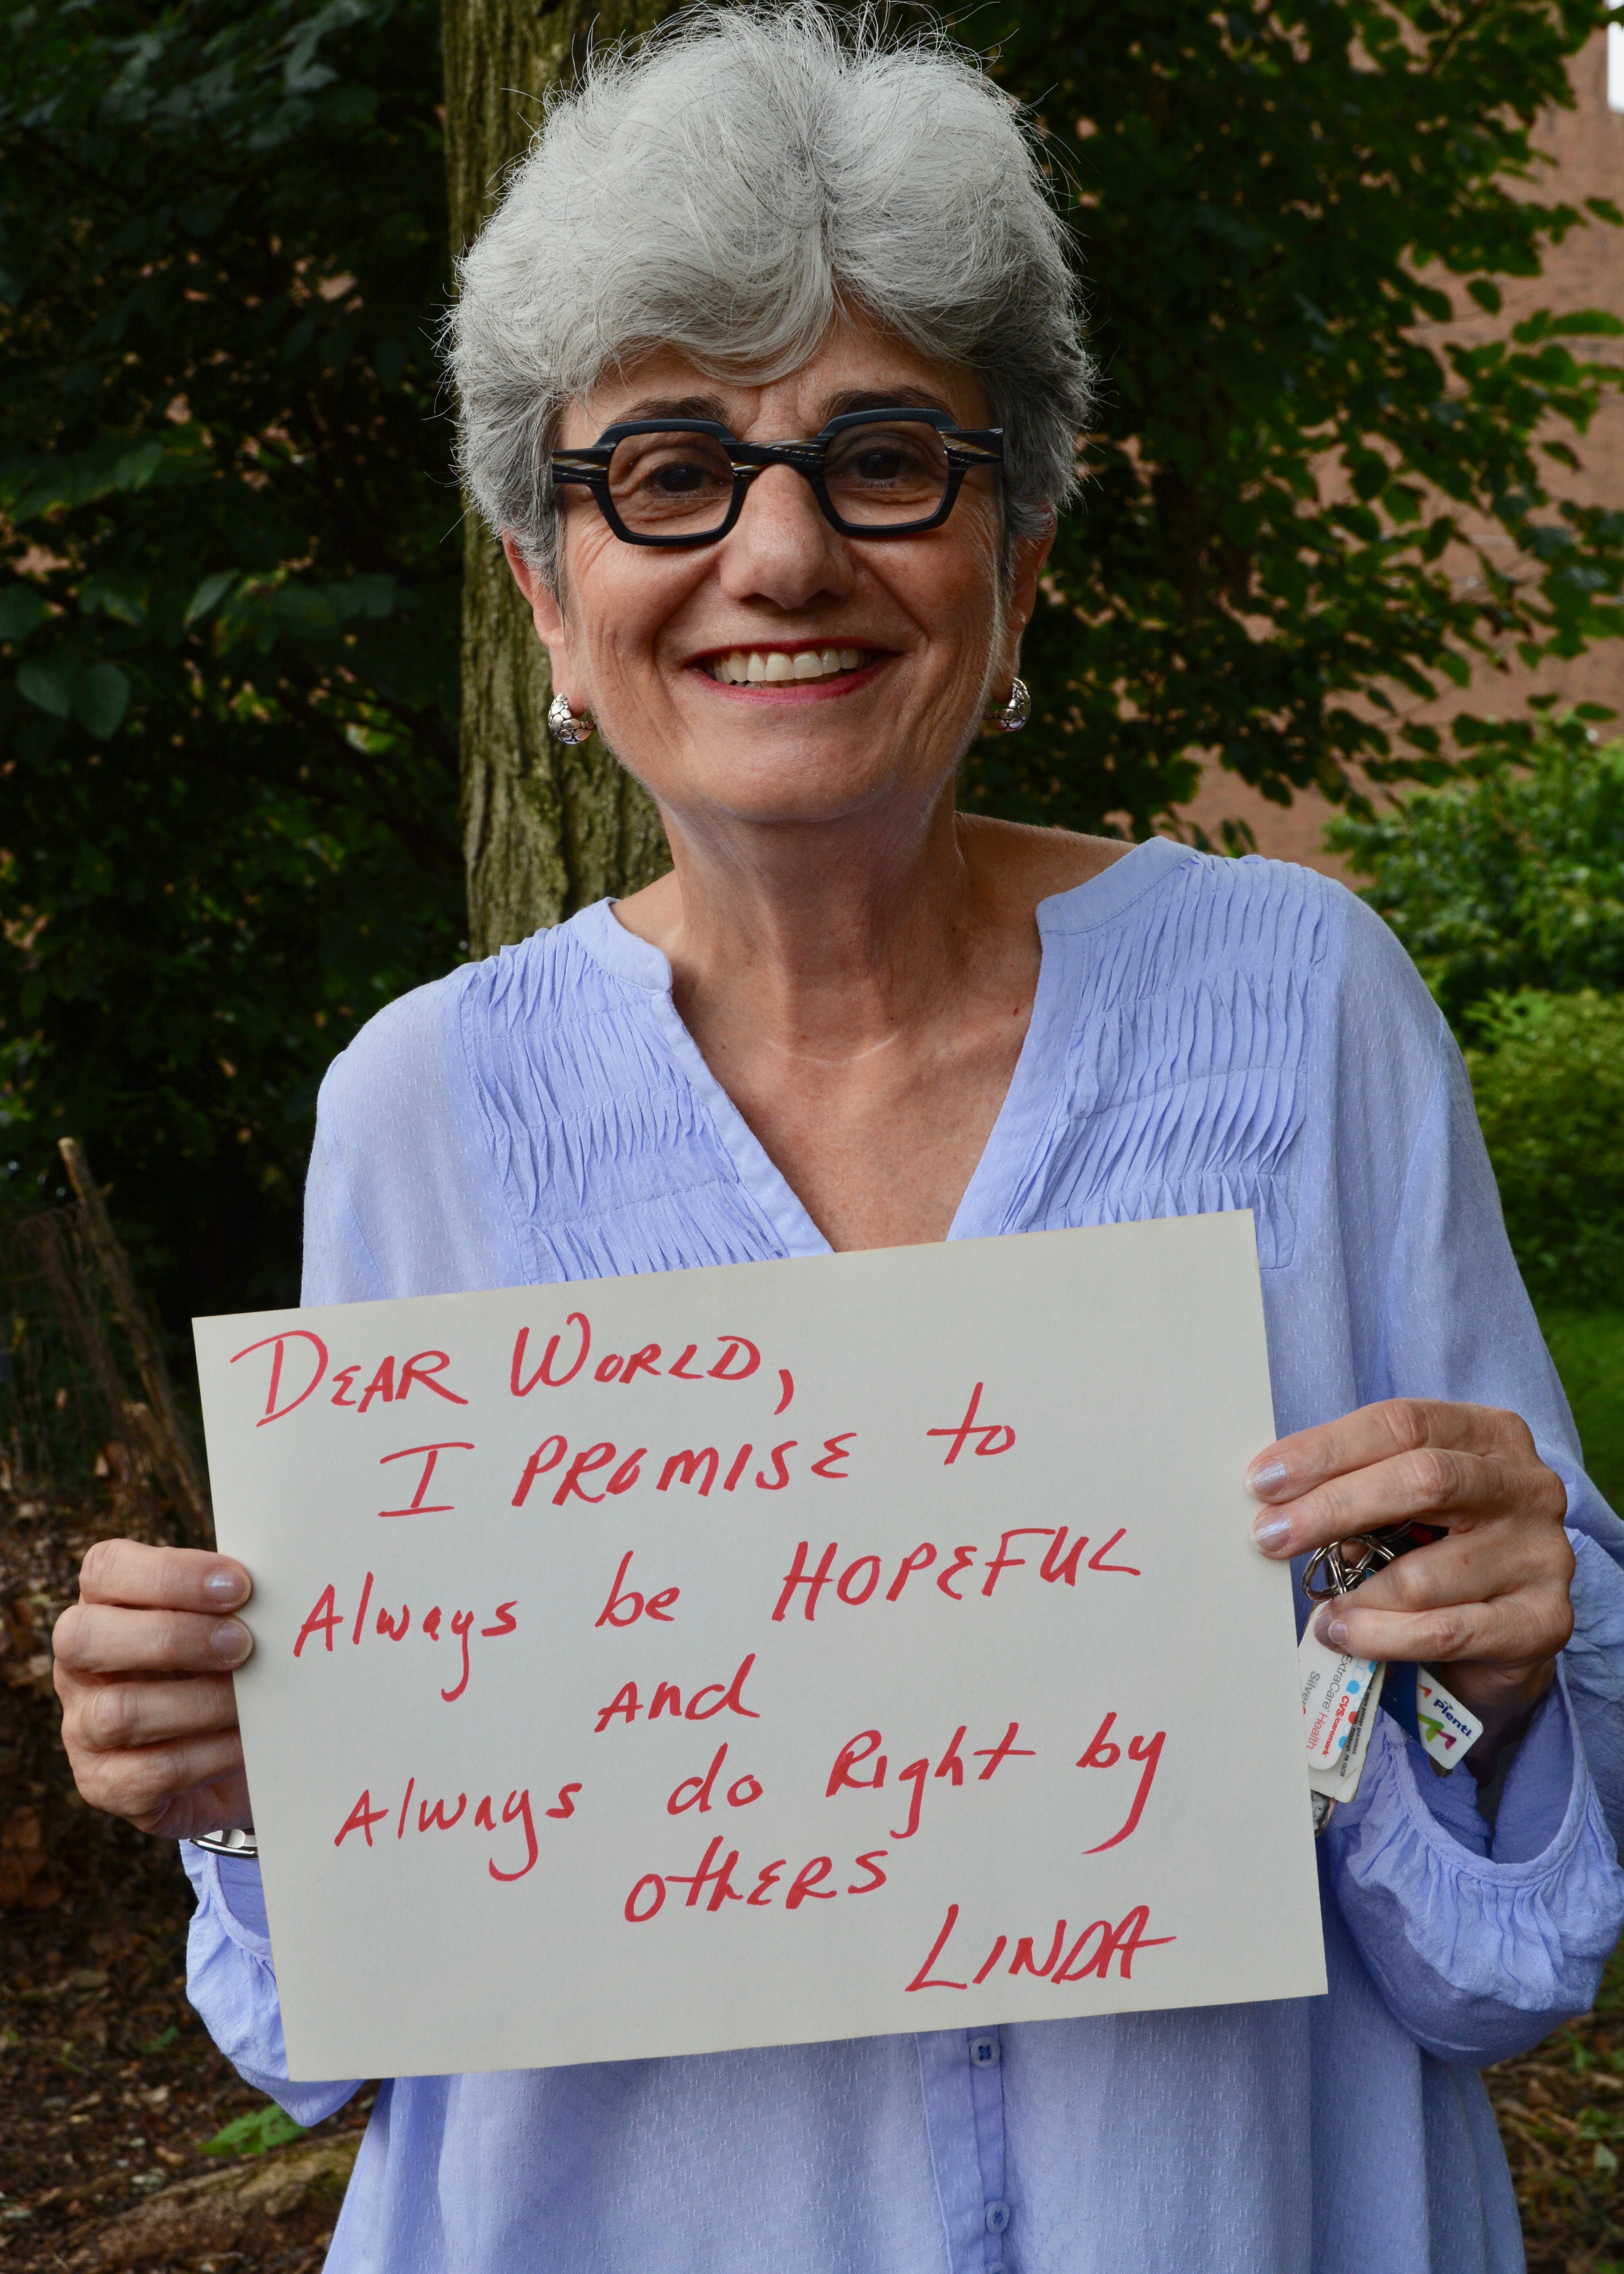 DEAR WORLD,
I PROMISE to
Always be HOPEFUL
And
Always do Right by
others
LINDA
ExtraCare Health
Silver
CVS/caremark
Plenti